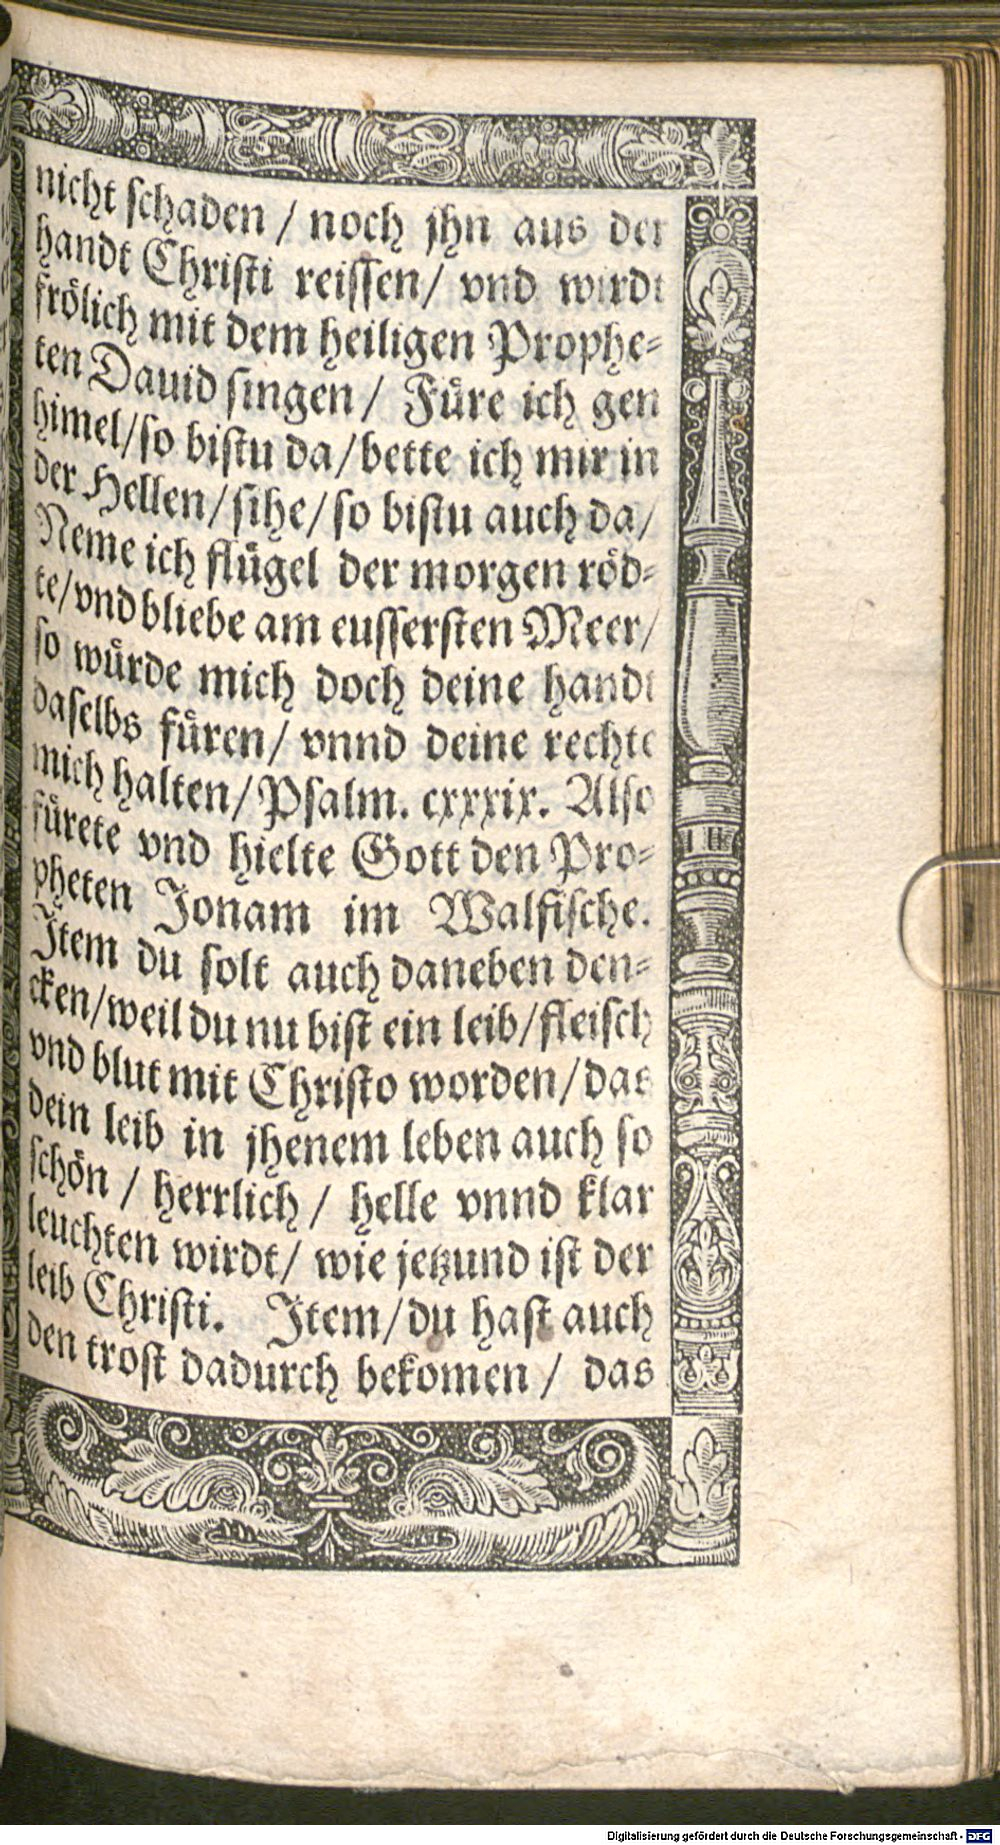 nicht schaden / noch jhn aus der
handt Christi reissen/ vnd wirdt
frölich mit dem heiligen Prophe⸗
ten Dauid singen / Füre ich gen
himel/so bistu da/bette ich mir in
der Hellen/sihe/so bistu auch da/
Neme ich flügel der morgen röd⸗
te/vnd bliebe am eussersten Meer/
so würde mich doch deine handt
daselbs füren/ vnnd deine rechte
mich halten/Psalm. cxxxix. Also
fürete vnd hielte Gott den Pro⸗
pheten Jonam im Walfische.
Item du solt auch daneben den⸗
cken/weil du nu bist ein leib/fleisch
vnd blut mit Christo worden/das
dein leib in jhenem leben auch so
schön / herrlich / helle vnnd klar
leuchten wirdt/ wie jetzund ist der
leib Christi. Item/du hast auch
den trost dadurch bekomen / das
Digitalisierung gefördert durch die Deutsche Forschungsgemeinschaft - DFG